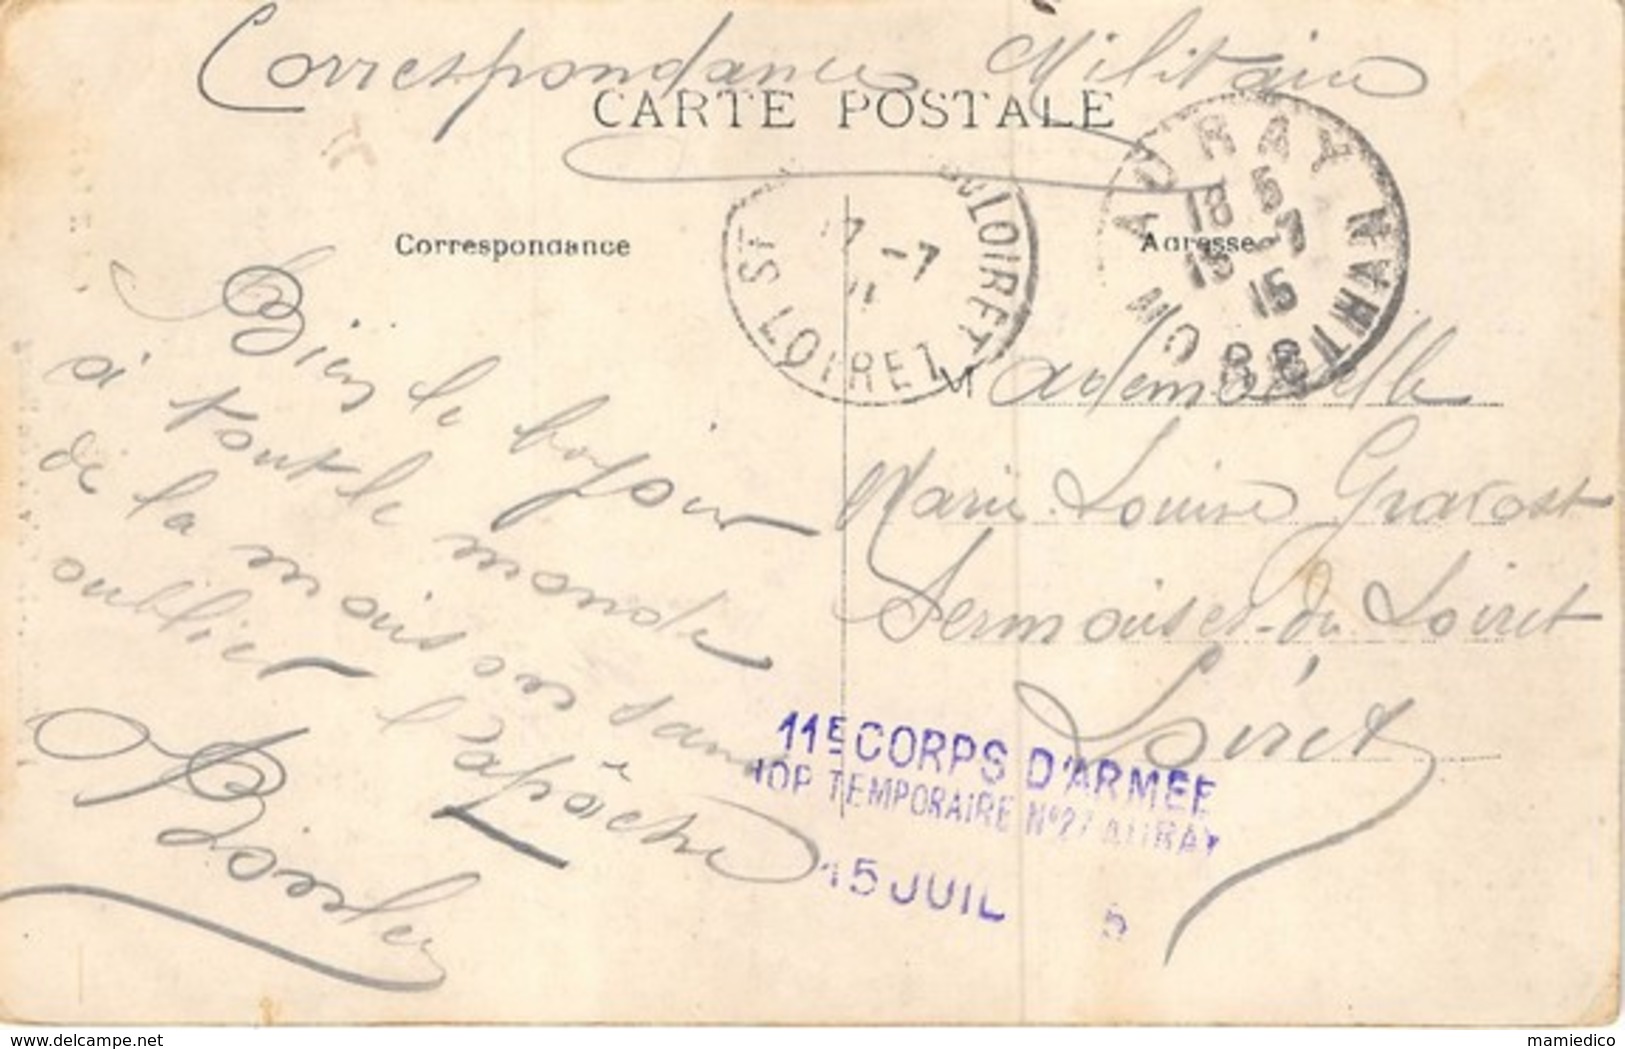 Correspondance Militaire
CARTE POSTALE
Correspondance
Adresse
AURAY MORBIHAN
18 5
15 -7
15
17 -7
ST LOIRET
LOIRET
Bien le bonjour
à tout le monde
de la maison sans
oublier l'apôche
Mademoiselle
Marie Louise Gravost
Sermoises-du Loiret
Loiret
11E CORPS D'ARMEE
HOP TEMPORAIRE N°27 AURAY
15 JUIL 5
delcampe.net
mamiedico